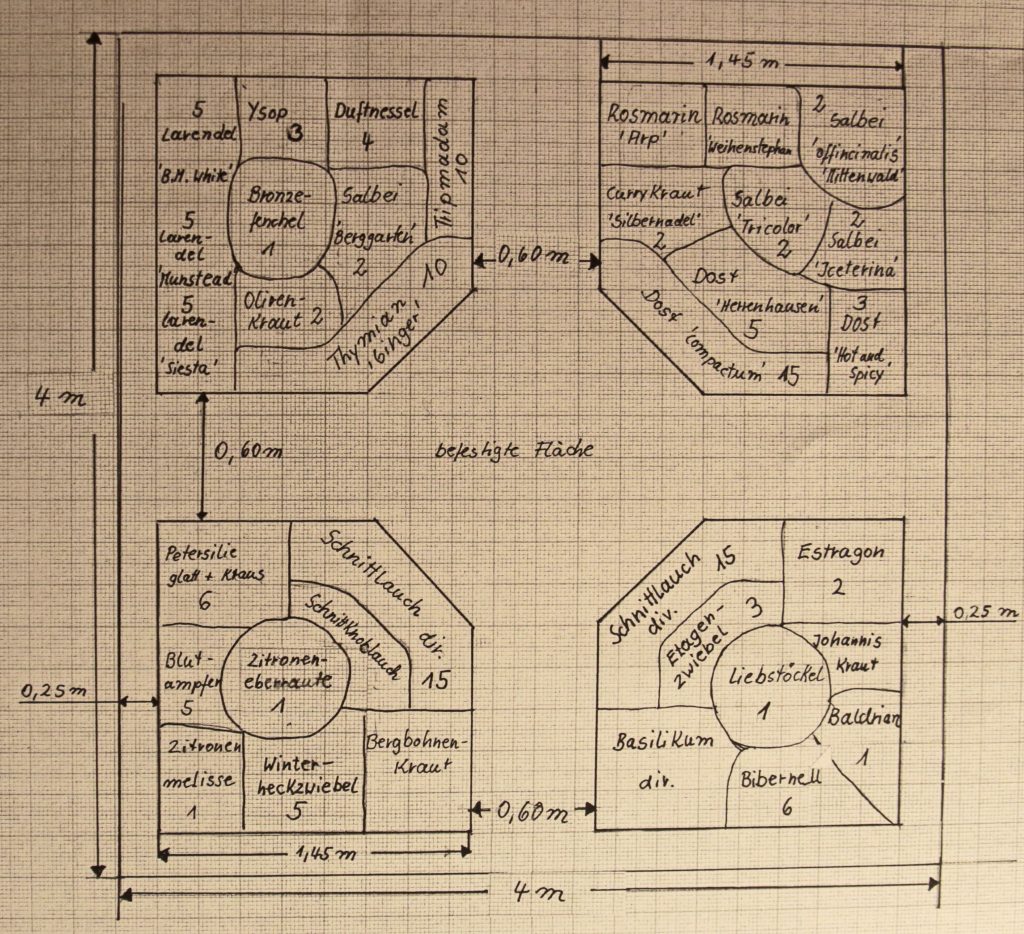 1,45 m
5
Lavendel
'B.M. White'
5
Laven-
del
'Munstead'
5
Laven-
del
'Siesta'
Ysop
3
Duftnessel
4
Tripmadam
10
Bronze-
fenchel
1
Salbei
'Berggarten'
2
Oliven-
Kraut 2
10
Thymian
'Binger'
0,60 m
Rosmarin
'Arp'
Rosmarin
'Weihenstephan'
2
Salbei
'offincinalis
'Nittenwald'
Curry Kraut
'Silbernadel'
2
Salbei
'Tricolor'
2
2
Salbei
'Iceterina'
Dost
'Herrenhausen'
5
Dost 'Compactum' 15
3
Dost
'Hot and
Spicy'
4 m
0,60 m
befestigte Fläche
Petersilie
glatt + Kraus
6
Schnittlauch div.
15
Schnittknoblauch
Blut-
ampfer
5
Zitronen-
eberraute
1
Zitronen
melisse
1
Winter-
heckzwiebel
5
Bergbohnen-
Kraut
Schnittlauch 15
div.
Etagen-
zwiebel
3
Estragon
2
Johannis
Kraut
Liebstöckel
1
Baldrian
1
Basilikum
div.
Bibernell
6
0,25 m
0,25 m
0,60 m
1,45 m
4 m